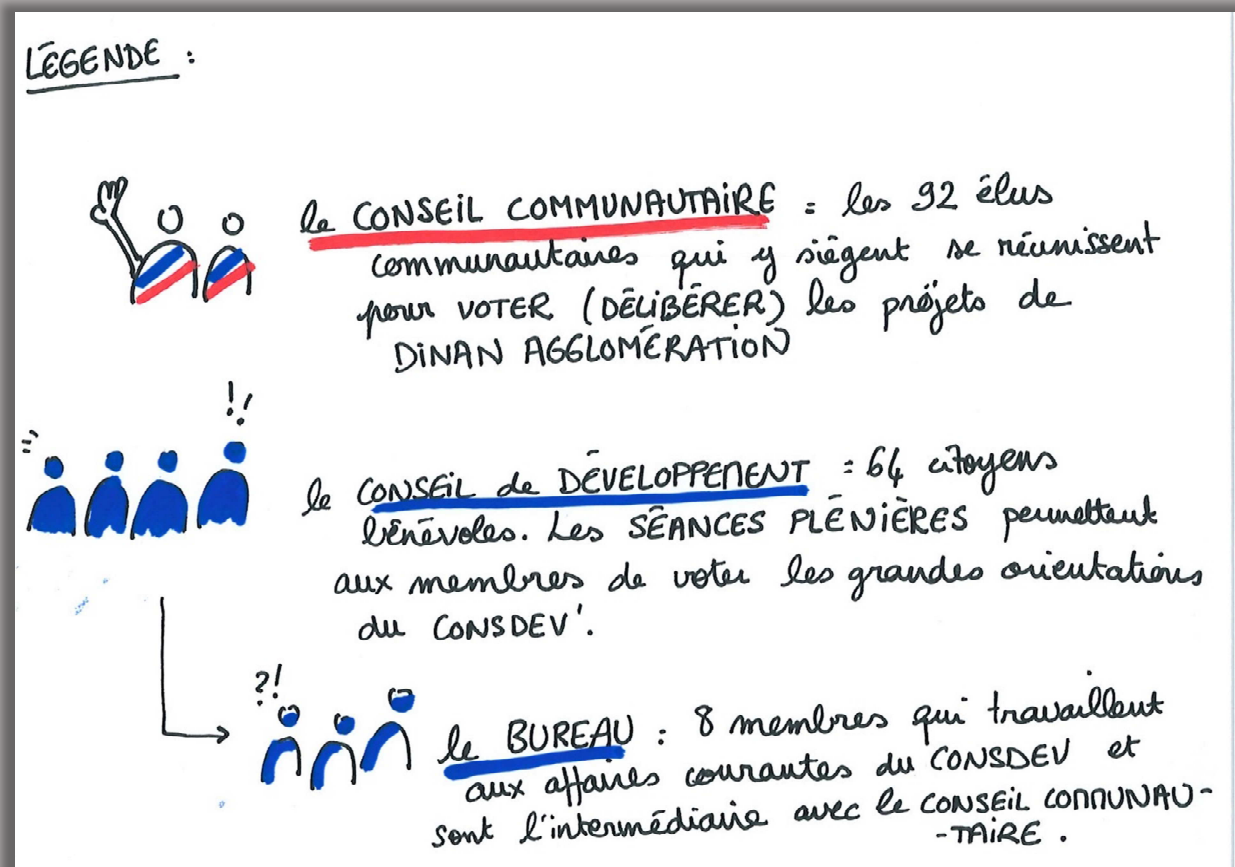 LÉGENDE :
le CONSEIL COMMUNAUTAIRE = les 92 élus
communautaires qui y siègent se réunissent
pour VOTER (DÉLIBÉRER) les projets de
DINAN AGGLOMÉRATION
!!
le CONSEIL de DÉVELOPPEMENT = 64 citoyens
bénévoles. Les SÉANCES PLÉNIÈRES permettent
aux membres de voter les grandes orientations
du CONSDEV'.
?!
le BUREAU : 8 membres qui travaillent
aux affaires courantes du CONSDEV et
sont l'intermédiaire avec le CONSEIL COMMUNAU-
-TAIRE.